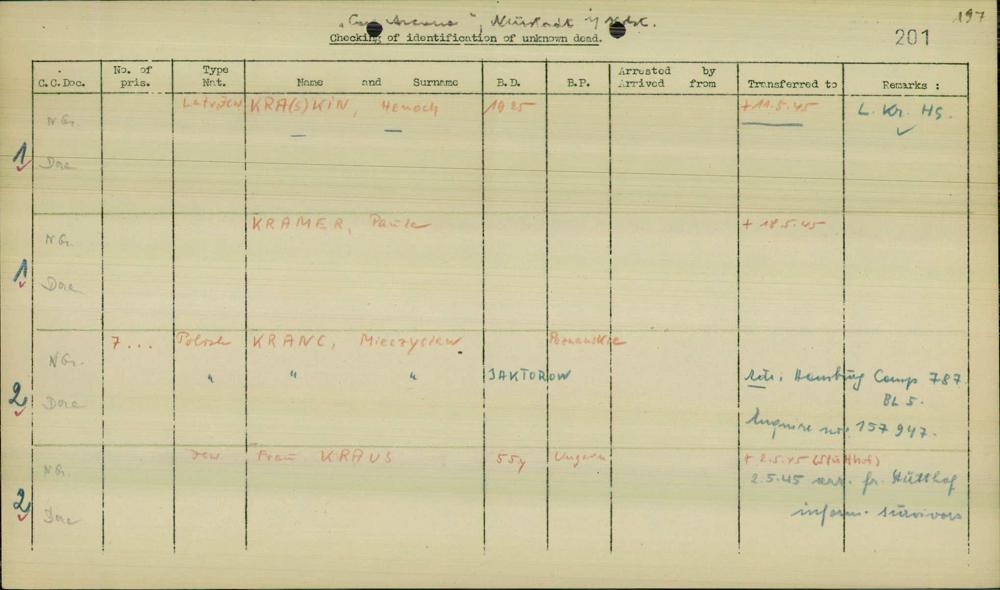 "Cap Arcona", Neustadt i/Holst.
197
Checking of identification of unknown dead.
201
C.C.Doc. No. of pris. Type Nat. Name and Surname B.D. B.P. Arrested by Arrived from Transferred to Remarks :
NGr. KRA(s)KIN, Henoch 1925 +11.5.45 L. Kr. HS.
1 Dora
NGr. KRAMER, Paula + 18.5.45
1 Dora
NGr. 7... KRANC, Mieczyslaw
" " " JAKTOROW Hamburg Camp 787
2 Dora BL 5.
157 947.
NGr. Frau KRAUS 55y Ungarn + 2.5.45 (Stutthof)
2.5.45 arr. fr. Stutthof
2 Dora inform. survivors